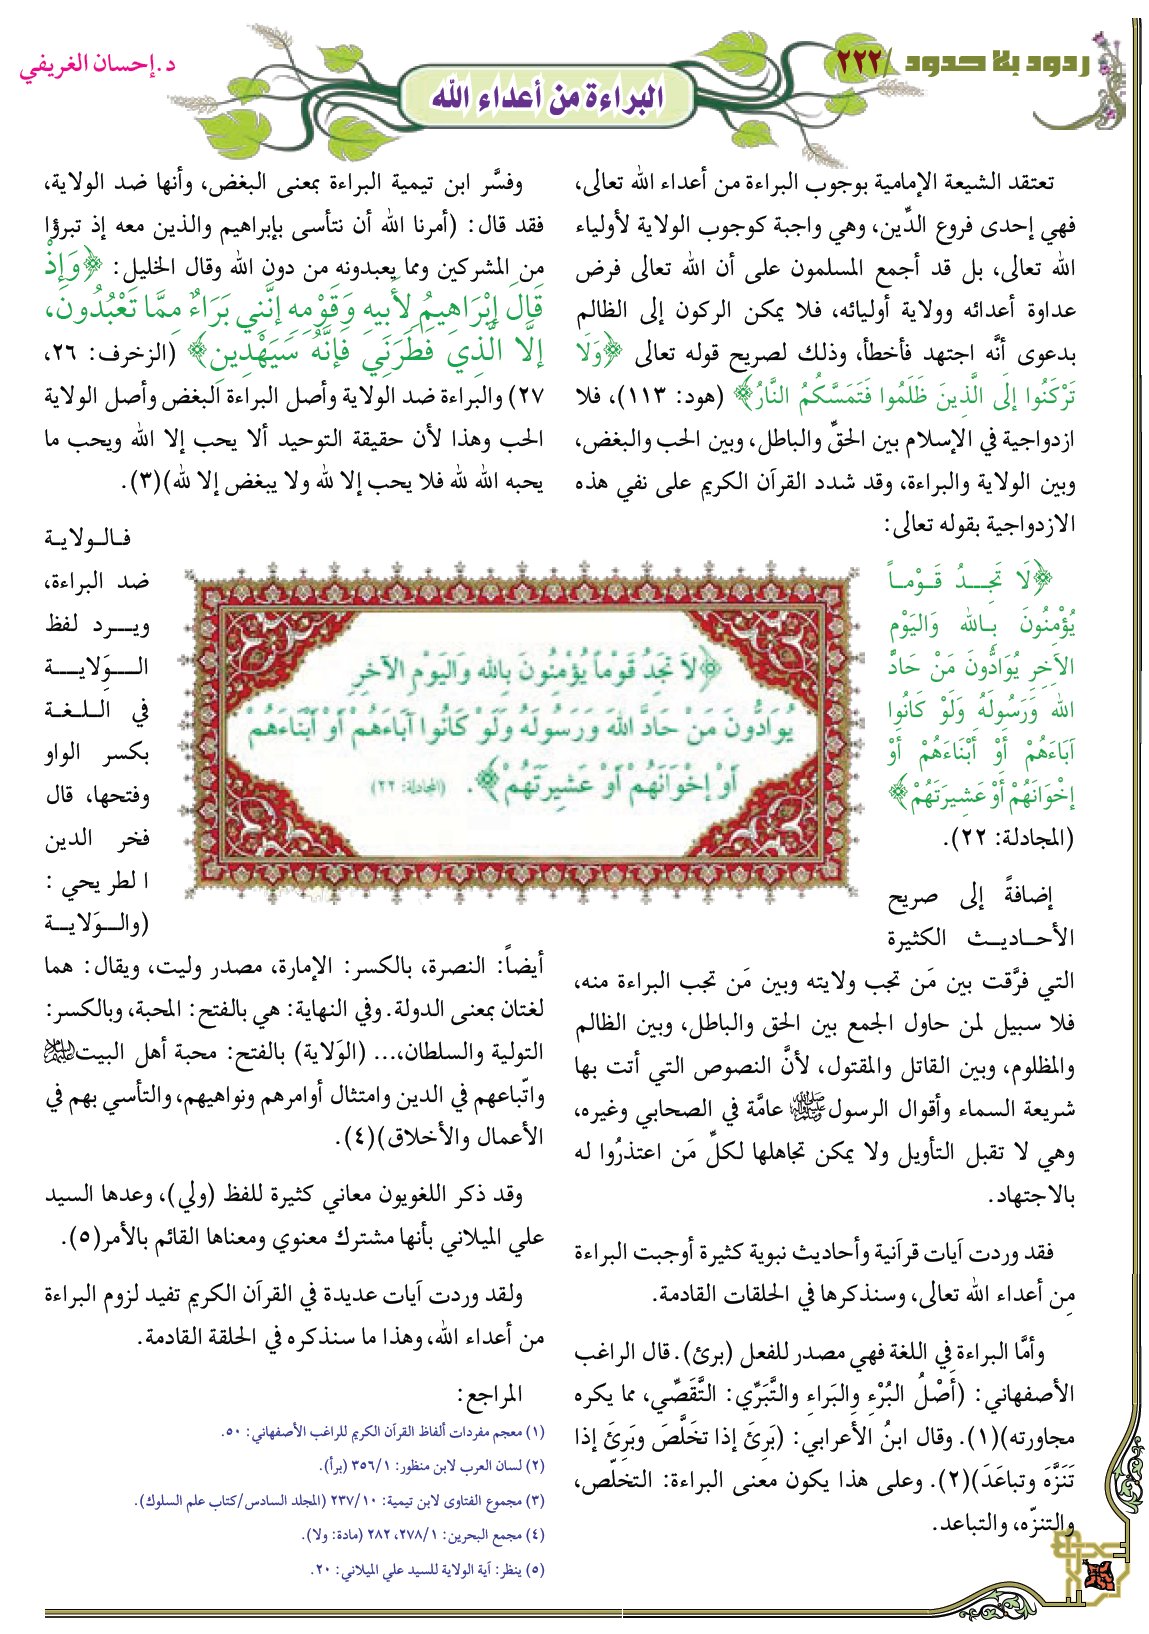 ردود بلا حدود / ٢٢٢
د.إحسان الغريفي
البراءة من أعداء الله
تعتقد الشيعة الإمامية بوجوب البراءة من أعداء الله تعالى،
فهي إحدى فروع الدِّين، وهي واجبة كوجوب الولاية لأولياء
الله تعالى، بل قد أجمع المسلمون على أن الله تعالى فرض
عداوة أعدائه وولاية أوليائه، فلا يمكن الركون إلى الظالم
بدعوى أنَّه اجتهد فأخطأ، وذلك لصريح قوله تعالى ﴿وَلَا
تَرْكَنُوا إِلَى الَّذِينَ ظَلَمُوا فَتَمَسَّكُمُ النَّارُ﴾ (هود: ١١٣)، فلا
ازدواجية في الإسلام بين الحقِّ والباطل، وبين الحب والبغض،
وبين الولاية والبراءة، وقد شدد القرآن الكريم على نفي هذه
الازدواجية بقوله تعالى:
﴿لَا تَجِدُ قَوْماً
يُؤْمِنُونَ بِالله وَاليَوْم
الآخِرِ يُوَادُّونَ مَنْ حَادَّ
الله وَرَسُولَهُ وَلَوْ كَانُوا
آبَاءَهُمْ أَوْ أَبْنَاءَهُمْ أَوْ
إِخْوَانَهُمْ أَوْ عَشِيرَتَهُمْ﴾
(المجادلة: ٢٢).
إضافةً إلى صريح
الأحاديث الكثيرة
التي فرَّقت بين مَن تجب ولايته وبين مَن تجب البراءة منه،
فلا سبيل لمن حاول الجمع بين الحق والباطل، وبين الظالم
والمظلوم، وبين القاتل والمقتول، لأنَّ النصوص التي أتت بها
شريعة السماء وأقوال الرسولﷺ عامَّة في الصحابي وغيره،
وهي لا تقبل التأويل ولا يمكن تجاهلها لكلِّ مَن اعتذرُوا له
بالاجتهاد.
فقد وردت آيات قرآنية وأحاديث نبوية كثيرة أوجبت البراءة
مِن أعداء الله تعالى، وسنذكرها في الحلقات القادمة.
وأمَّا البراءة في اللغة فهي مصدر للفعل (برئ). قال الراغب
الأصفهاني: (أَصْلُ البُرْءِ والبَراءِ والتَّبَرِّي: التَّقَصِّي، مما يكره
مجاورته)(١). وقال ابنُ الأعرابي: (بَرِئَ إذا تخَلَّصَ وبَرِئَ إذا
تَنَزَّهَ وتباعَدَ)(٢). وعلى هذا يكون معنى البراءة: التخلّص،
والتنزّه، والتباعد.
﴿لَا تَجِدُ قَوْماً يُؤْمِنُونَ بِالله وَاليَوْمِ الآخِرِ
يُوَادُّونَ مَنْ حَادَّ اللهَ وَرَسُولَهُ وَلَوْ كَانُوا آبَاءَهُمْ أَوْ أَبْنَاءَهُمْ
أَوْ إِخْوَانَهُمْ أَوْ عَشِيرَتَهُمْ﴾. (المجادلة: ٢٢)
وفسَّر ابن تيمية البراءة بمعنى البغض، وأنها ضد الولاية،
فقد قال: (أمرنا الله أن نتأسى بإبراهيم والذين معه إذ تبرؤا
من المشركين ومما يعبدونه من دون الله وقال الخليل: ﴿وَإِذْ
قَالَ إِبْرَاهِيمُ لِأَبِيهِ وَقَوْمِهِ إِنَّنِي بَرَاءٌ مِمَّا تَعْبُدُونَ،
إِلَّا الَّذِي فَطَرَنِي فَإِنَّهُ سَيَهْدِينِ﴾ (الزخرف: ٢٦،
٢٧) والبراءة ضد الولاية وأصل البراءة البغض وأصل الولاية
الحب وهذا لأن حقيقة التوحيد ألا يحب إلا الله ويحب ما
يحبه الله لله فلا يحب إلا لله ولا يبغض إلا لله)(٣).
فالولاية
ضد البراءة،
ويرد لفظ
الوَلاية
في اللغة
بكسر الواو
وفتحها، قال
فخر الدين
الطريحي:
(والوَلاية
أيضاً: النصرة، بالكسر: الإمارة، مصدر وليت، ويقال: هما
لغتان بمعنى الدولة. وفي النهاية: هي بالفتح: المحبة، وبالكسر:
التولية والسلطان،... (الوَلاية) بالفتح: محبة أهل البيت عليهم السلام
واتّباعهم في الدين وامتثال أوامرهم ونواهيهم، والتأسي بهم في
الأعمال والأخلاق)(٤).
وقد ذكر اللغويون معاني كثيرة للفظ (ولي)، وعدها السيد
علي الميلاني بأنها مشترك معنوي ومعناها القائم بالأمر(٥).
ولقد وردت آيات عديدة في القرآن الكريم تفيد لزوم البراءة
من أعداء الله، وهذا ما سنذكره في الحلقة القادمة.
المراجع:
(١) معجم مفردات ألفاظ القرآن الكريم للراغب الأصفهاني: ٥٠.
(٢) لسان العرب لابن منظور: ٣٥٦/١ (برأ).
(٣) مجموع الفتاوى لابن تيمية: ٢٣٧/١٠ (المجلد السادس/كتاب علم السلوك).
(٤) مجمع البحرين: ٢٧٨/١، ٢٨٢ (مادة: ولا).
(٥) ينظر: آية الولاية للسيد علي الميلاني: ٢٠.